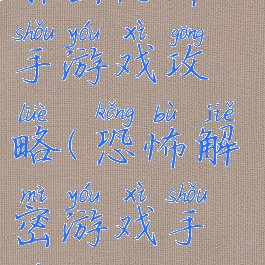 shǒu yóu xì gōng
手游戏攻
lüè kǒng bù jiě
略(恐怖解
mì yóu xì shǒu
密游戏手